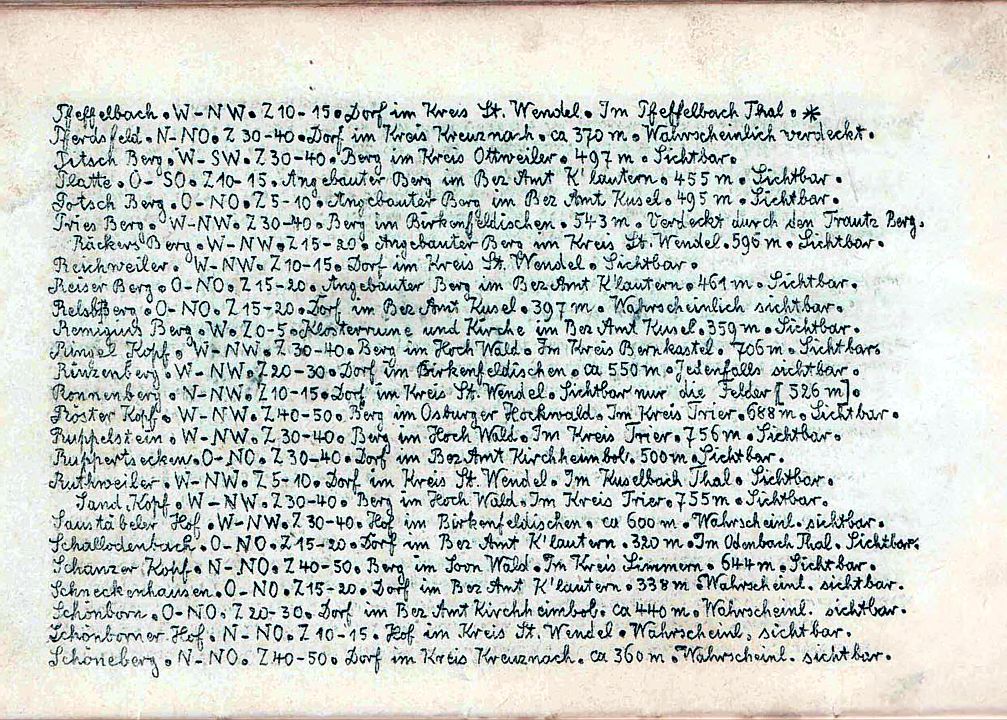 Pfeffelbach • W-NW. Z 10-15 • Dorf im Kreis St. Wendel. Im Pfeffelbach Thal. • *
Pferdsfeld. N-NO. Z 30-40 • Dorf im Kreis Kreuznach. ca 370 m. Wahrscheinlich verdeckt.
Pitsch Berg. W-SW. Z 30-40. Berg im Kreis Ottweiler. 497 m. Sichtbar.
Platte. O-SO. Z 10-15. Angebauter Berg im Bez Amt K'lautern. 455 m. Sichtbar.
Potsch Berg. O-NO. Z 5-10. Angebauter Berg im Bez Amt Kusel. 495 m. Sichtbar.
Pries Berg. W-NW. Z 30-40. Berg im Birkenfeldischen. 543 m. Verdeckt durch den Trautz Berg.
Rückers Berg. W-NW. Z 15-20. Angebauter Berg im Kreis St. Wendel. 596 m. Sichtbar.
Reichweiler. W-NW. Z 10-15. Dorf im Kreis St. Wendel. Sichtbar.
Reiser Berg. O-NO. Z 15-20. Angebauter Berg im Bez Amt K'lautern. 461 m. Sichtbar.
Relsberg. O-NO. Z 15-20. Dorf im Bez Amt Kusel. 397 m. Wahrscheinlich sichtbar.
Remigius Berg. W. Z 0-5. Klosterruine und Kirche im Bez Amt Kusel. 359 m. Sichtbar.
Ringel Kopf. W-NW. Z 30-40. Berg im Hoch Wald. Im Kreis Bernkastel. 706 m. Sichtbar.
Rinzenberg. W-NW. Z 20-30. Dorf im Birkenfeldischen. ca 550 m. Jedenfalls sichtbar.
Ronnenberg. N-NW. Z 10-15. Dorf im Kreis St. Wendel. Sichtbar nur die Felder [526 m].
Röster Kopf. W-NW. Z 40-50. Berg im Osburger Hochwald. Im Kreis Trier. 688 m. Sichtbar.
Ruppelstein. W-NW. Z 30-40. Berg im Hoch Wald. Im Kreis Trier. 756 m. Sichtbar.
Ruppertsecken. O-NO. Z 30-40. Dorf im Bez Amt Kirchheimbol. 500 m. Sichtbar.
Ruthweiler. W-NW. Z 5-10. Dorf im Kreis St. Wendel. Im Kuselbach Thal. Sichtbar.
Sand Kopf. W-NW. Z 30-40. Berg im Hoch Wald. Im Kreis Trier. 755 m. Sichtbar.
Saustabeler Hof. W-NW. Z 30-40. Hof im Birkenfeldischen. ca 600 m. Wahrscheinl. sichtbar.
Schallodenbach. O-NO. Z 15-20. Dorf im Bez Amt K'lautern. 320 m. Im Odenbach Thal. Sichtbar.
Schanzer Kopf. N-NO. Z 40-50. Berg im Soon Wald. Im Kreis Simmern. 644 m. Sichtbar.
Schneckenhausen. O-NO. Z 15-20. Dorf im Bez Amt K'lautern. 338 m. Wahrscheinl. sichtbar.
Schönborn. O-NO. Z 20-30. Dorf im Bez Amt Kirchheimbol. ca 440 m. Wahrscheinl. sichtbar.
Schönborner Hof. N-NO. Z 10-15. Hof im Kreis St. Wendel. Wahrscheinl. sichtbar.
Schöneberg. N-NO. Z 40-50. Dorf im Kreis Kreuznach. ca 360 m. Wahrscheinl. sichtbar.